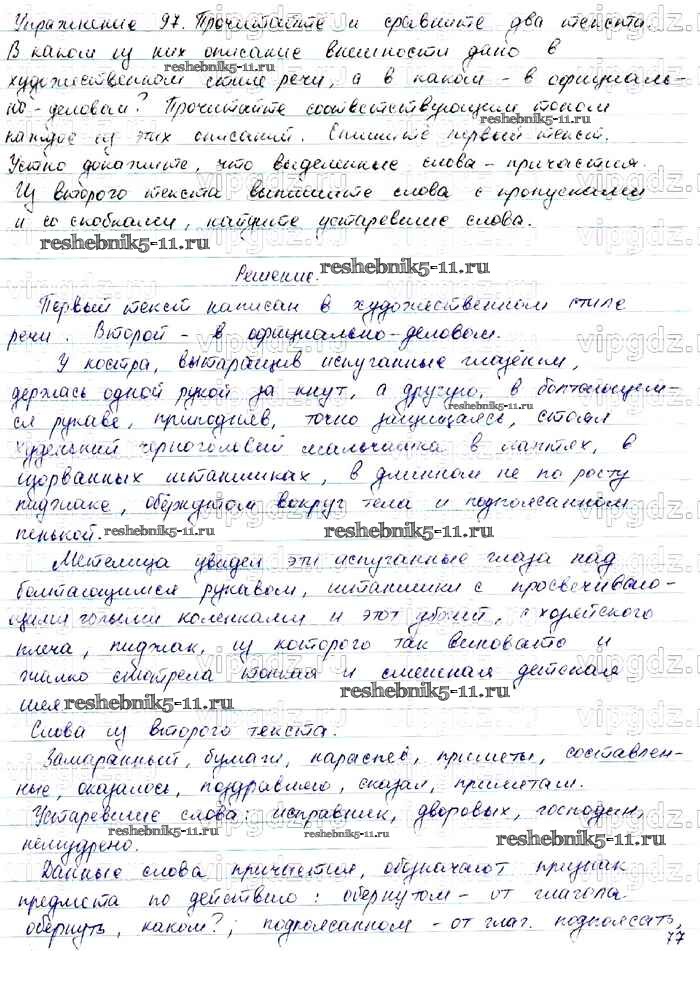 Упражнение 97. Прочитайте и сравните два текста.
В каком из них описание внешности дано в
художественном стиле речи, а в каком - в официаль-
reshebnik5-11.ru
но - деловом? Прочитайте соответствующим тоном
reshebnik5-11.ru
каждое из этих описаний. Спишите первый текст.
Устно докажите, что выделенные слова - причастия.
Из второго текста выпишите слова с пропусками
и со скобками, найдите устаревшие слова.
reshebnik5-11.ru
Решение.
reshebnik5-11.ru
Первый текст написан в художественном стиле
речи. Второй - в официально-деловом.
У костра, вытаращив испуганные глазёнки,
держась одной рукой за кнут, а другую, в болтающем-
reshebnik5-11.ru
ся рукаве, приподняв, точно защищаясь, стоял
худенький черноголовый мальчишка в лаптях, в
изорванных штанишках, в длинном не по росту
пиджаке, обёрнутом вокруг тела и подпоясанном
пенькой.
reshebnik5-11.ru
reshebnik5-11.ru
Метелица увидел эти испуганные глаза над
болтающимся рукавом, штанишки с просвечиваю-
щими голыми коленками и этот убогий, с хозяйского
плеча, пиджак, из которого так виновато и
жалко смотрела тонкая и смешная детская
шея
reshebnik5-11.ru
reshebnik5-11.ru
Слова из второго текста.
Замаранный, бумаги, нараспев, приметы, составлен-
ные, оказалось, поздравляю, сказал, приметам.
Устаревшие слова: исправник, дворовых, господин,
reshebnik5-11.ru
reshebnik5-11.ru
reshebnik5-11.ru
немудрено.
Данные слова причастия, обозначают признак
предмета по действию: обёрнутом - от глагола
обернуть, каком?; подпоясанном - от глаг. подпоясать,
77